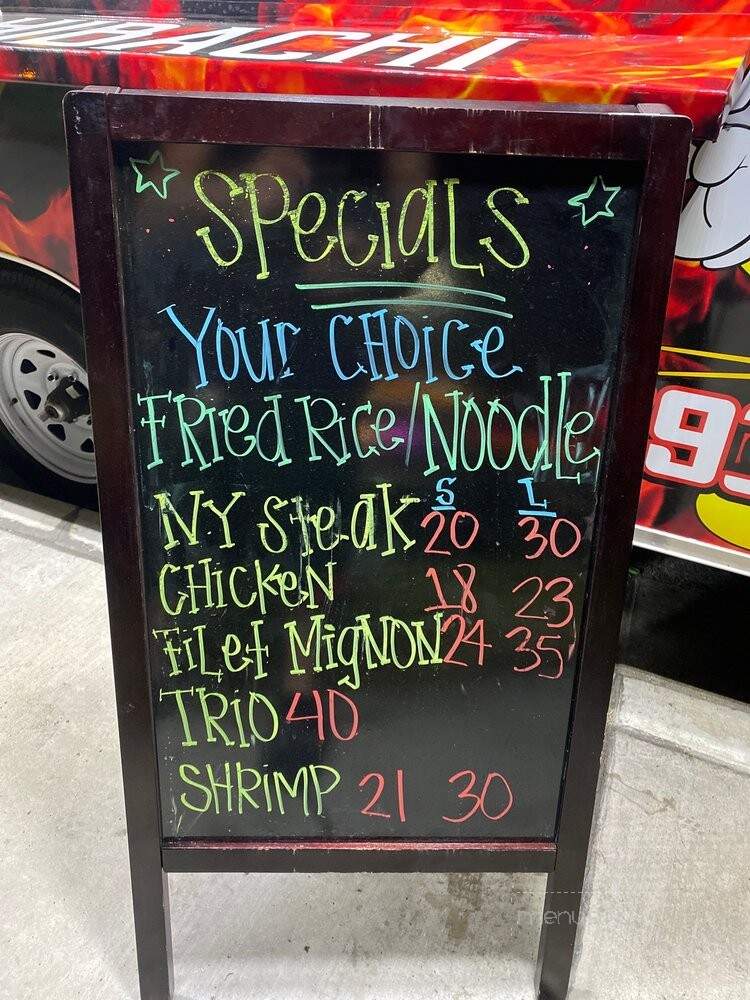 HIBACHI
SPecials
Your CHOice
FRied Rice/Noodle
S L
NY Steak 20 30
CHicken 18 23
FiLet MigNON 24 35
TRIO 40
SHRIMP 21 30
93
menu